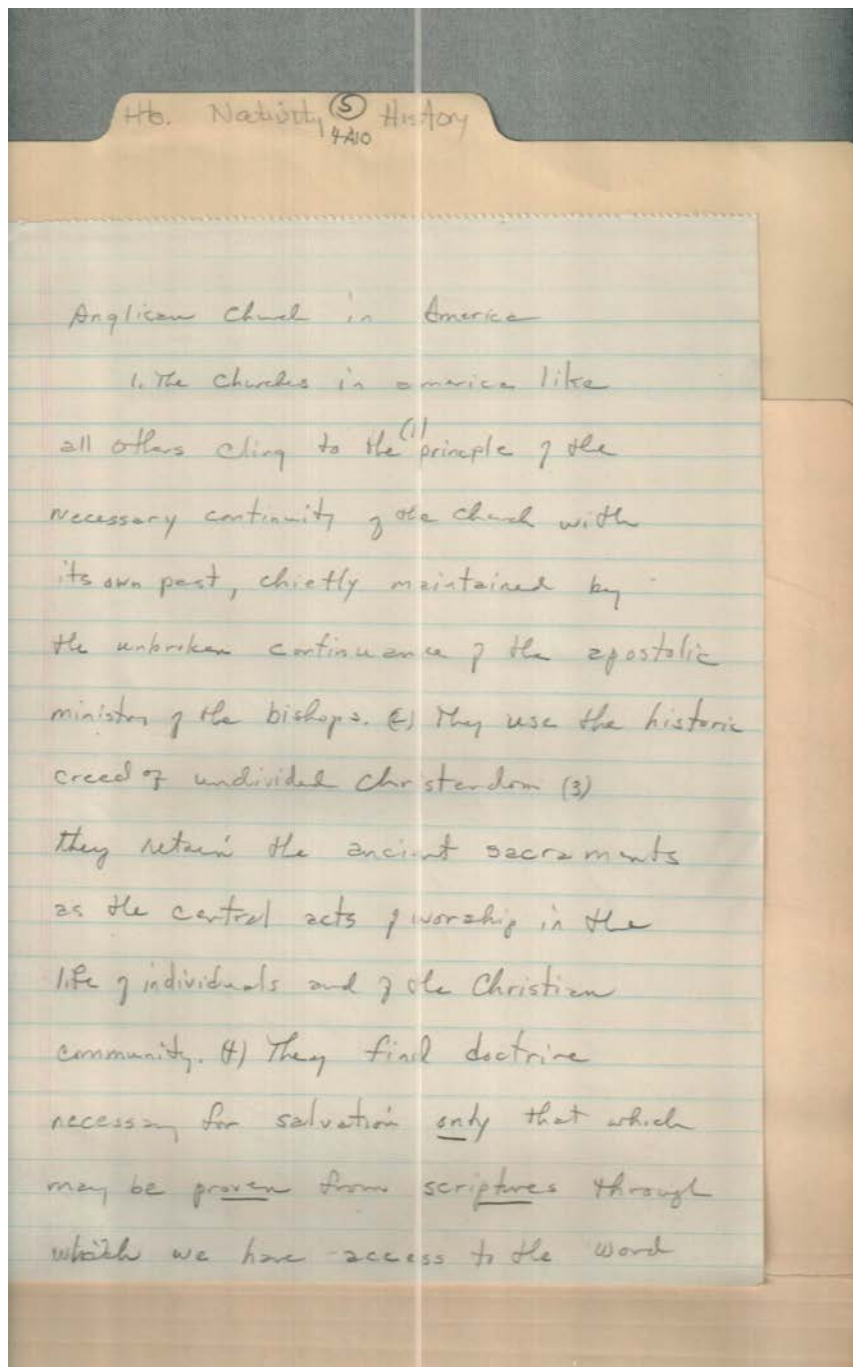 Hb. Nativity (5) History
4A10
Anglican Church in America
1. The Churches in america like
all others cling to the (1) principle of the
necessary continuity of the Church with
its own past, chiefly maintained by
the unbroken continuance of the apostolic
ministry of the bishops. (2) They use the historic
creed of undivided Christendom (3)
they retain the ancient sacraments
as the central acts of worship in the
life of individuals and of the Christian
community. (4) They find doctrine
necessary for salvation only that which
may be proven from scriptures through
which we have access to the word